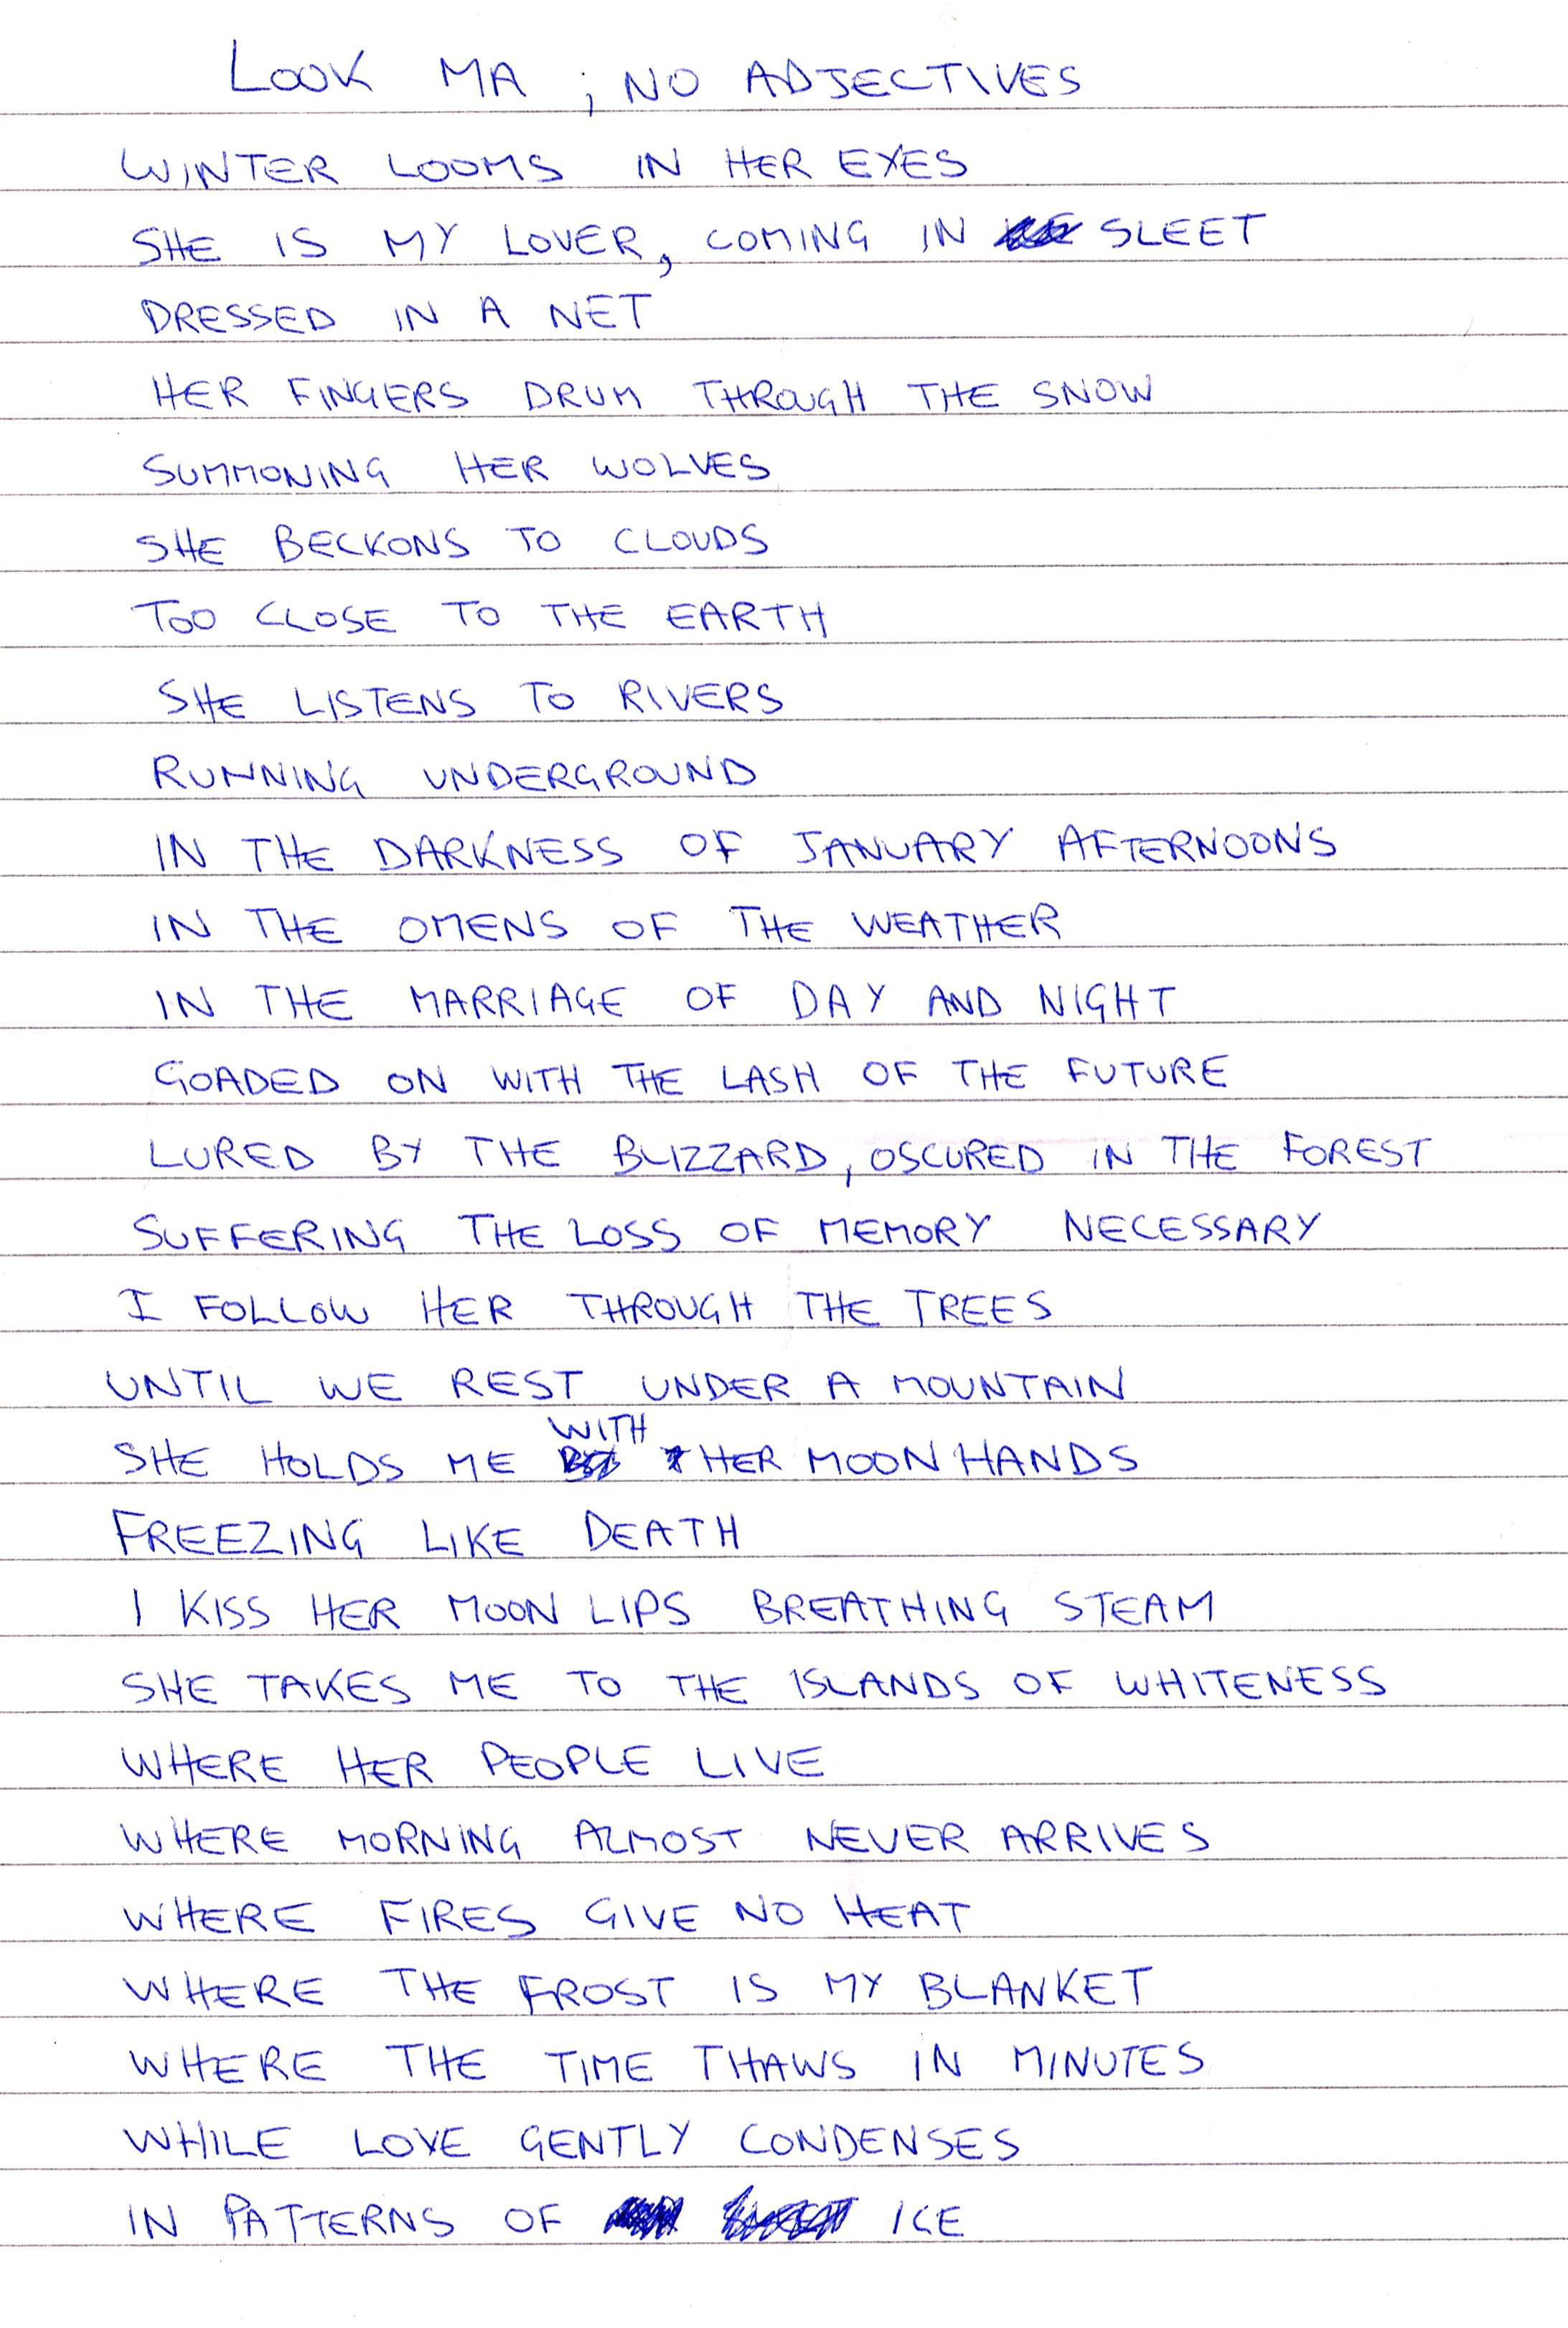 LOOK MA ; NO ADJECTIVES
WINTER LOOMS IN HER EYES
SHE IS MY LOVER, COMING IN SLEET
DRESSED IN A NET
HER FINGERS DRUM THROUGH THE SNOW
SUMMONING HER WOLVES
SHE BECKONS TO CLOUDS
TOO CLOSE TO THE EARTH
SHE LISTENS TO RIVERS
RUNNING UNDERGROUND
IN THE DARKNESS OF JANUARY AFTERNOONS
IN THE OMENS OF THE WEATHER
IN THE MARRIAGE OF DAY AND NIGHT
GOADED ON WITH THE LASH OF THE FUTURE
LURED BY THE BLIZZARD, OSCURED IN THE FOREST
SUFFERING THE LOSS OF MEMORY NECESSARY
I FOLLOW HER THROUGH THE TREES
UNTIL WE REST UNDER A MOUNTAIN
SHE HOLDS ME WITH HER MOON HANDS
FREEZING LIKE DEATH
I KISS HER MOON LIPS BREATHING STEAM
SHE TAKES ME TO THE ISLANDS OF WHITENESS
WHERE HER PEOPLE LIVE
WHERE MORNING ALMOST NEVER ARRIVES
WHERE FIRES GIVE NO HEAT
WHERE THE FROST IS MY BLANKET
WHERE THE TIME THAWS IN MINUTES
WHILE LOVE GENTLY CONDENSES
IN PATTERNS OF ICE